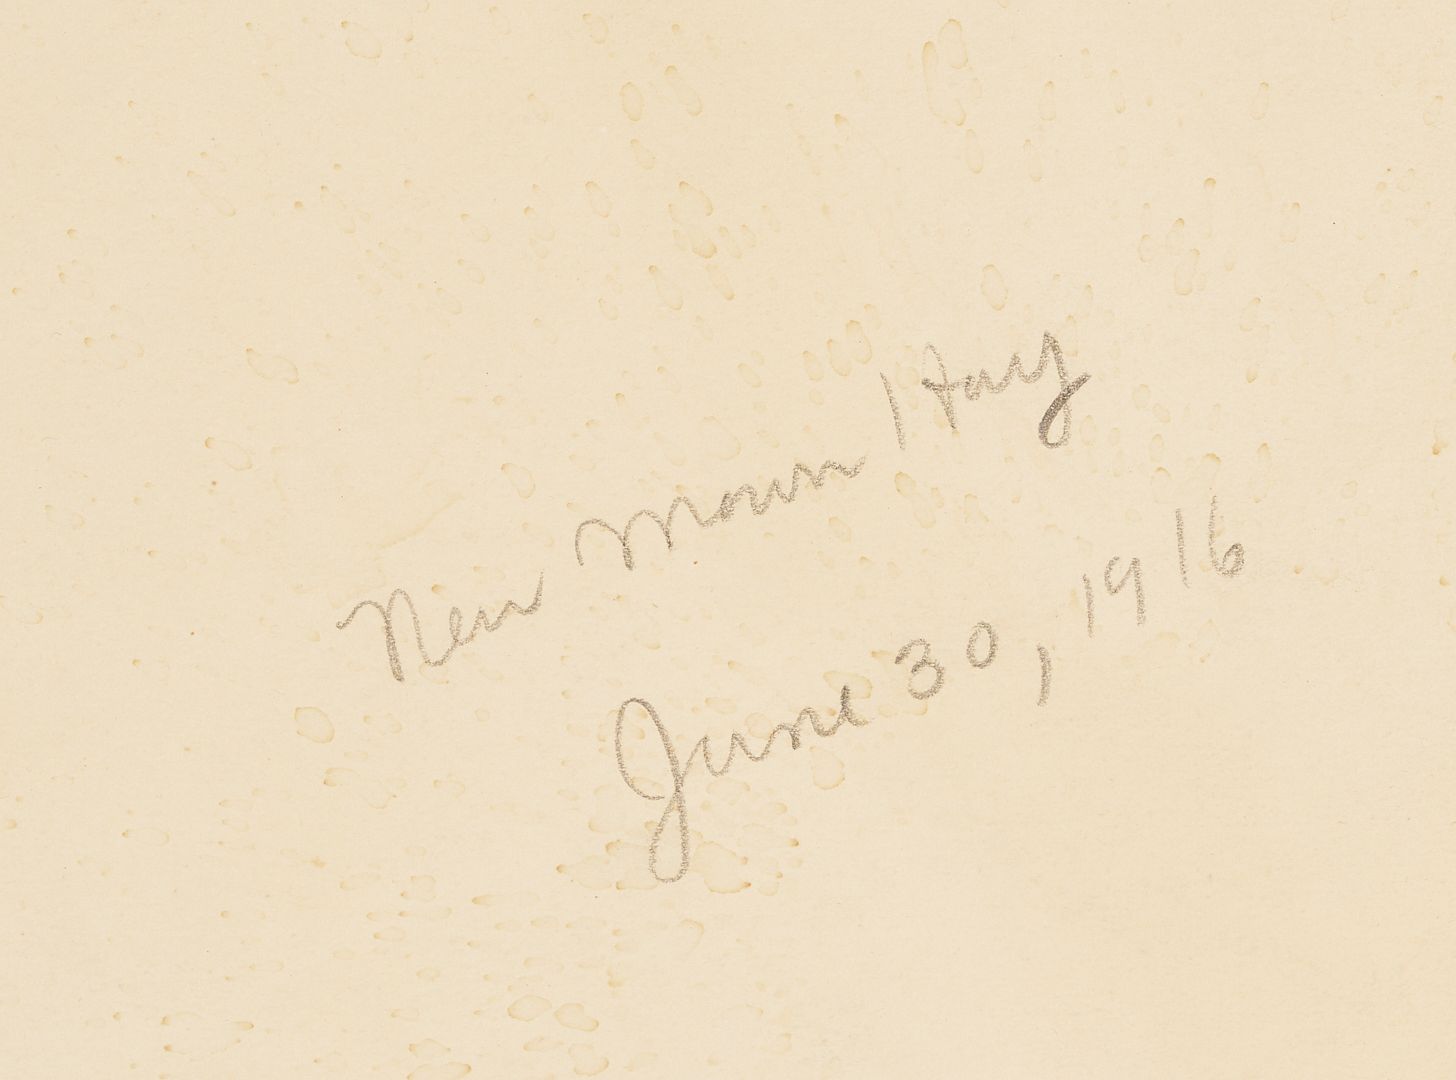 New Mown Hay
June 30, 1916